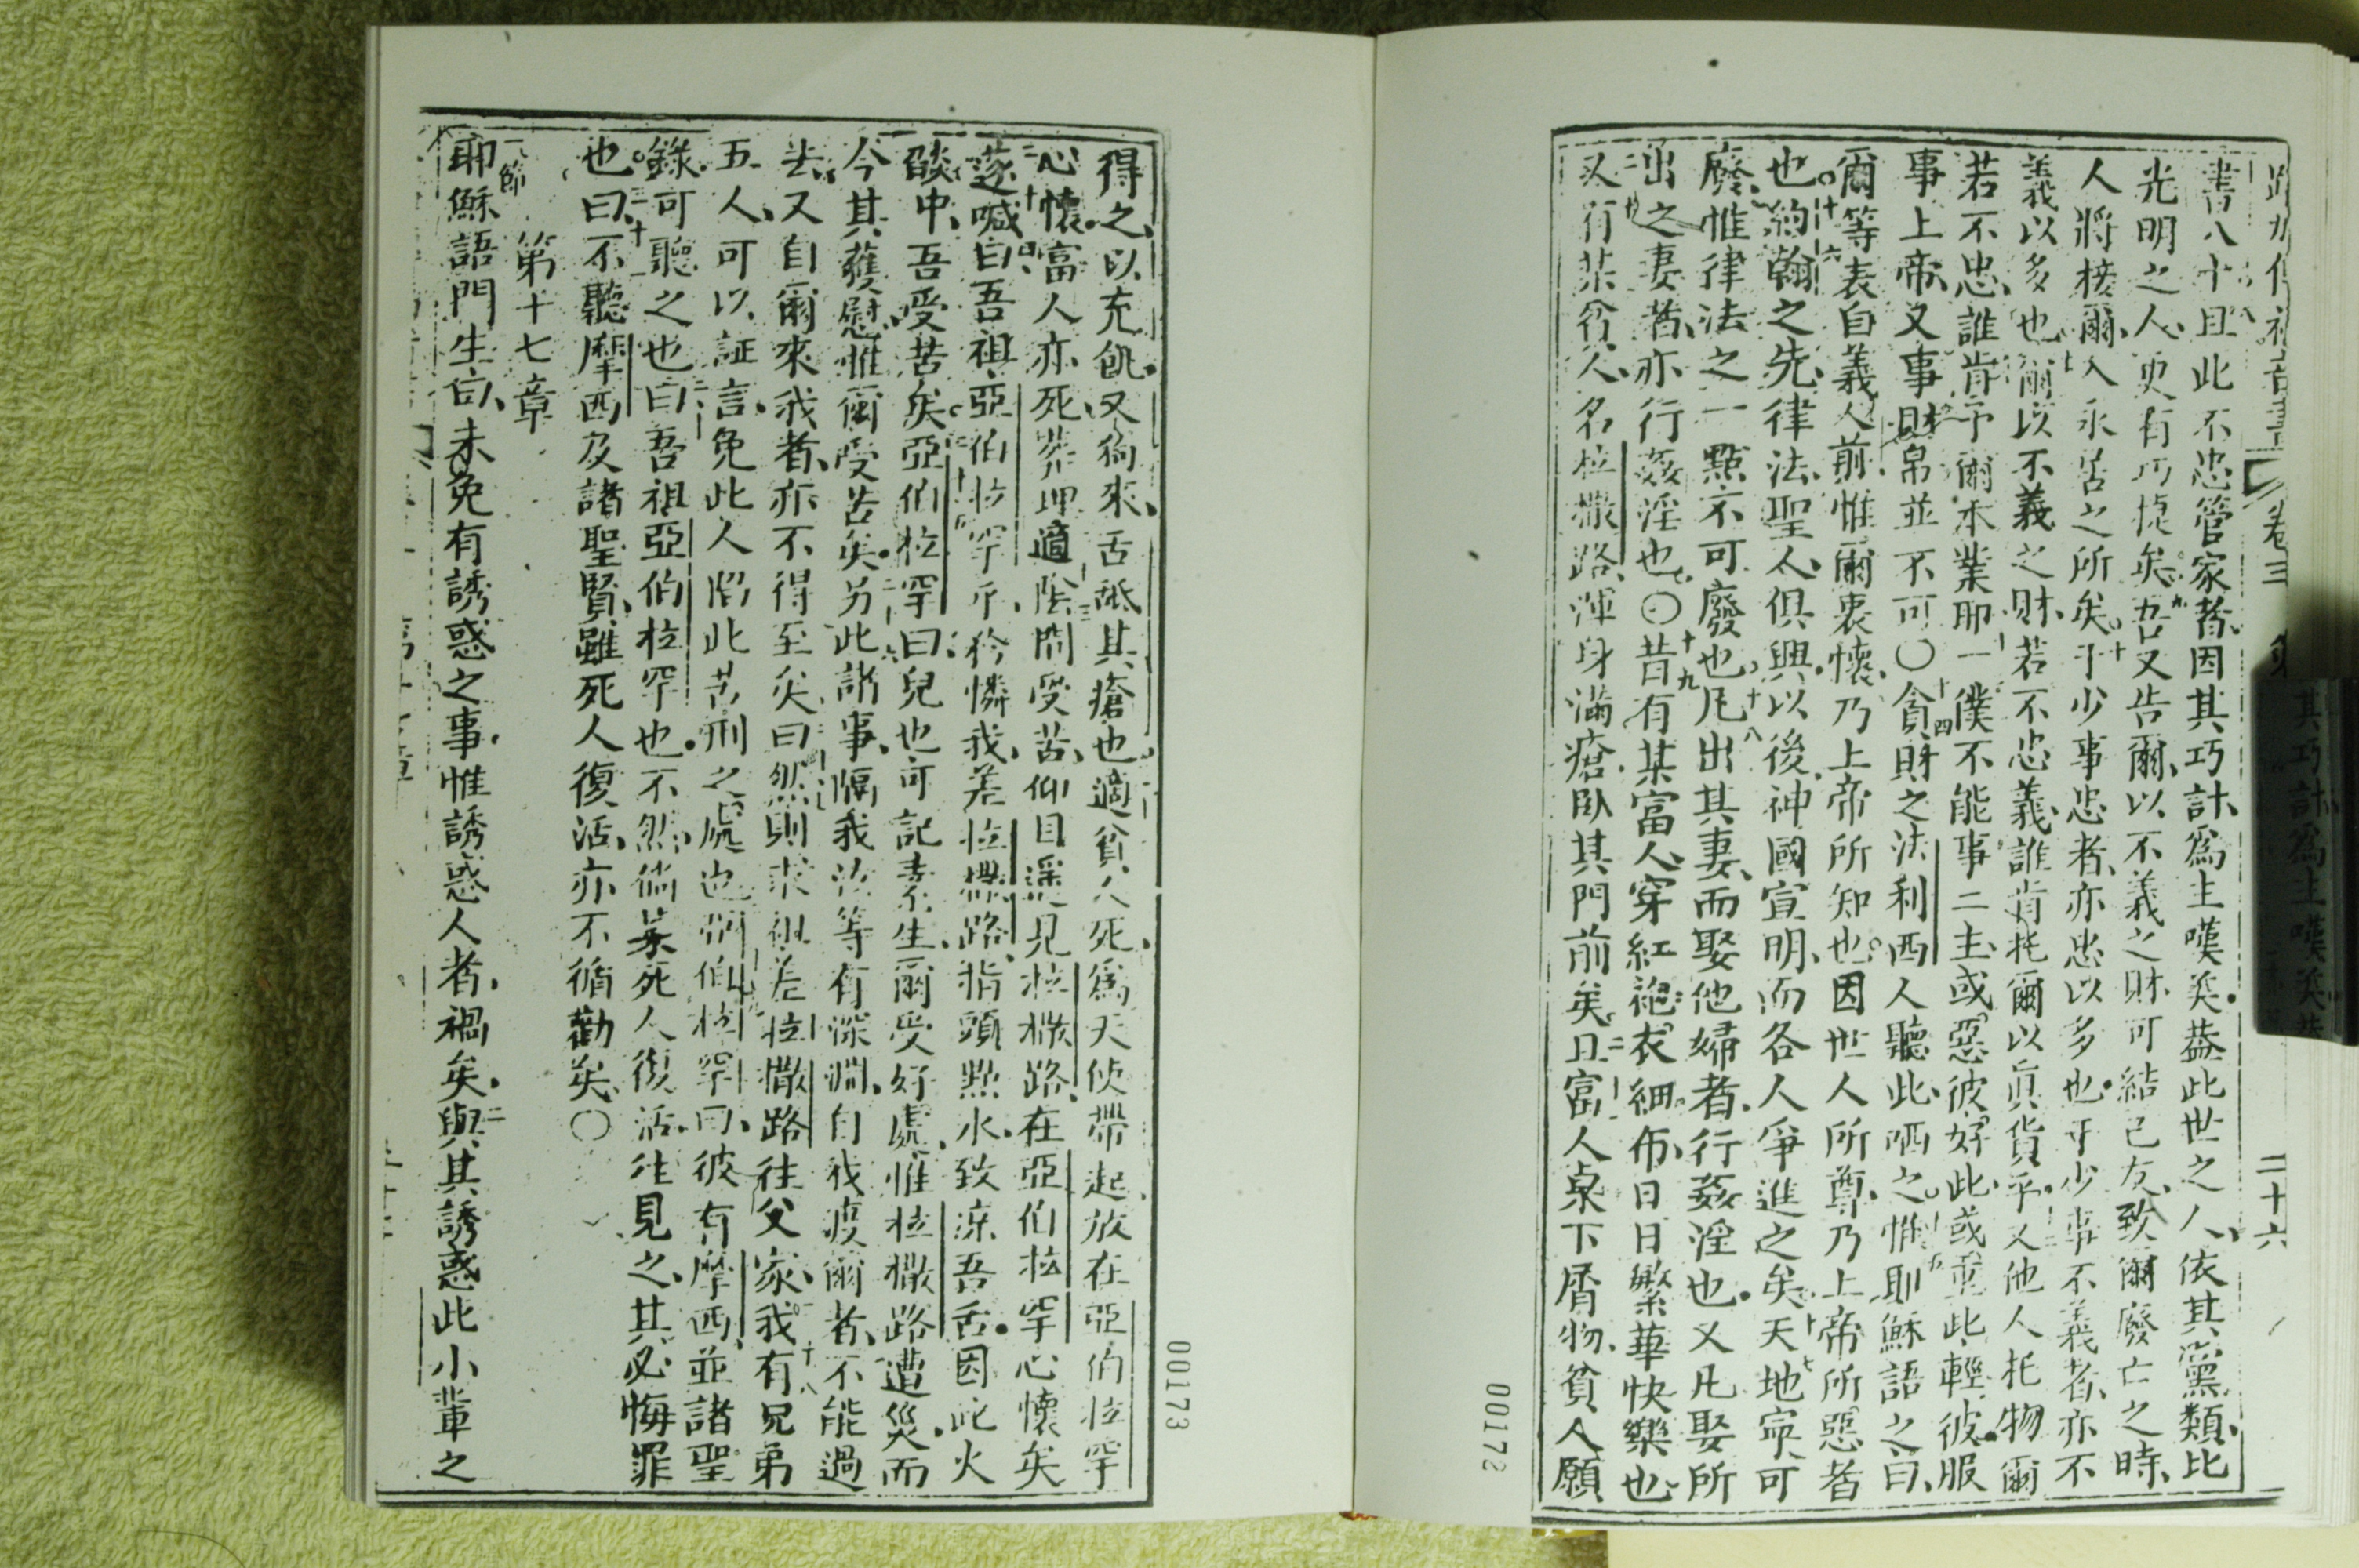 路加傳福音書 卷三 二十六
書八十且此不忠管家者、因其巧計、爲主嘆矣、蓋此世之人、依其黨類、比
光明之人、更有巧捷矣、九吾又告爾、以不義之財、可結己友、致爾廢亡之時、
人將接爾入永居之所矣、十于少事忠者、亦忠以多也、于少事不義者、亦不
義以多也、爾以不義之財、若不忠義、誰肯托爾以眞貨乎、又他人托物、爾
若不忠、誰肯予爾本業耶、一僕不能事二主、或惡彼好此、或重此輕彼、服
事上帝、又事財帛並不可〇十四貪財之法利西人聽此、哂之、惟耶穌語之曰、
爾等表自義人前、惟爾衷懷、乃上帝所知也、因世人所尊、乃上帝所惡者
也、十六約翰之先、律法聖人俱興、以後、神國宣明、而各人爭進之矣、十七天地寧可
廢、惟律法之一點不可廢也、十八凡出其妻、而娶他婦者、行姦淫也、又凡娶所
出之妻者、亦行姦淫也、〇十九昔有某富人、穿紅袍衣細布、日日繁華快樂也、
又有某貧人、名拉撒路、渾身滿瘡、臥其門前矣、且富人桌下屑物、貧人願
00172
得之、以充飢、又狗來、舌舐其瘡也、適貧人死、爲天使帶起放在亞伯拉罕
心懷、富人亦死、葬埋、適陰間受苦、仰目遙見拉撒路、在亞伯拉罕心懷矣
遂喊曰、吾祖亞伯拉罕乎、矜憐我、差拉撒路、指頭㸃水、致涼吾舌、因此火
燄中、吾受苦矣、亞伯拉罕曰、兒也可記素生、爾受好處、惟拉撒路遭災、而
今其獲慰、惟爾受苦矣、另此諸事、隔我汝等有深淵、自我渡爾者、不能過
去、又自爾來我者、亦不得至矣、曰然則求祖差拉撒路往父家、我有兄弟
五人、可以証言、免此人陷此苦刑之處也、亞伯拉罕曰、彼有摩西、並諸聖
錄、可聽之也、曰吾祖亞伯拉罕也、不然、倘某死人復活、往見之、其必悔罪
也、曰不聽摩西及諸聖賢、雖死人復活、亦不循勸矣、〇
第十七章
一節耶穌語門生曰、未免有誘惑之事、惟誘惑人者、禍矣、二與其誘惑此小輩之
00173